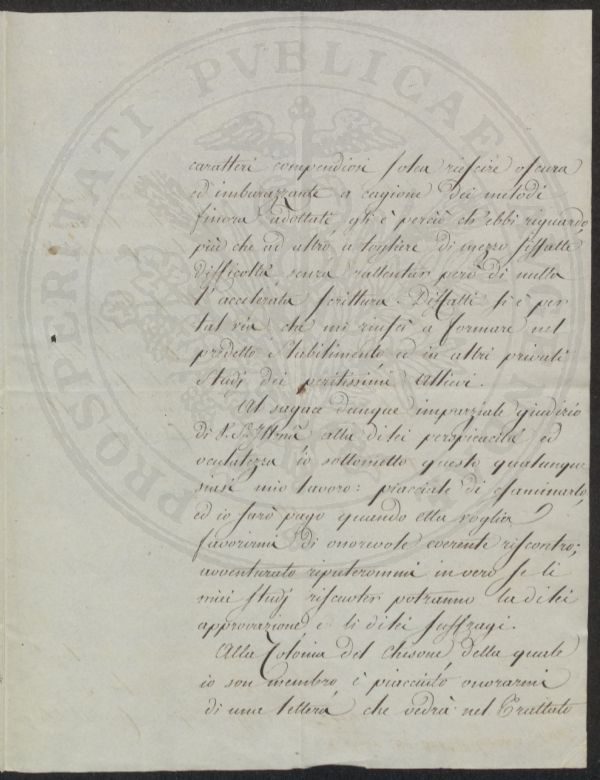 caratteri compendiosi potea riescire oscura
ed imbarazzante a cagione dei metodi
finora adottati, gli è perciò ch'ebbi riguardo,
più che ad altro, a togliere di mezzo siffatte
difficoltà senza rallentar però di nulla
l'accelerata scrittura. Diffatti si è per
tal via che mi riuscì a formare nel
predetto Stabilimento ed in altri privati
Studj dei peritissimi Allievi.
Al sagace dunque imparziale giudizio
di V. S. Illma alla di lei perspicacità ed
oculatezza io sottometto questo qualunque
siasi mio lavoro: piacciale di esaminarlo,
ed io sarò pago quando ella voglia
favorirmi di onorevole coerente riscontro;
avventurato riputerommi invero se li
miei Studj riscuoter potranno la di lei
approvazione e li di lei suffragi.
Alla Colonia del Chisone della quale
io son membro è piaciuto onorarmi
di una lettera che vedrà nel Trattato
PROSPERITATI PVBLICAE